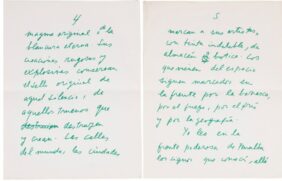 4
magma original o la
blancura eterna. Sus
creaciones rugosas y
explosivas conservan
el sello original de
aquel silencio, de
aquellos truenos que
destruyen destrozan
y crean. Las calles
del mundo, las ciudades
5
marcan a sus artistas,
con tinta indeleble, de
almacén o botica. Los
que vienen del espacio
siguen marcados en
la frente por la
por el fuego, por el frío
y por la geografía.
Yo leo en la
frente poderosa de
los signos que conocí, allá